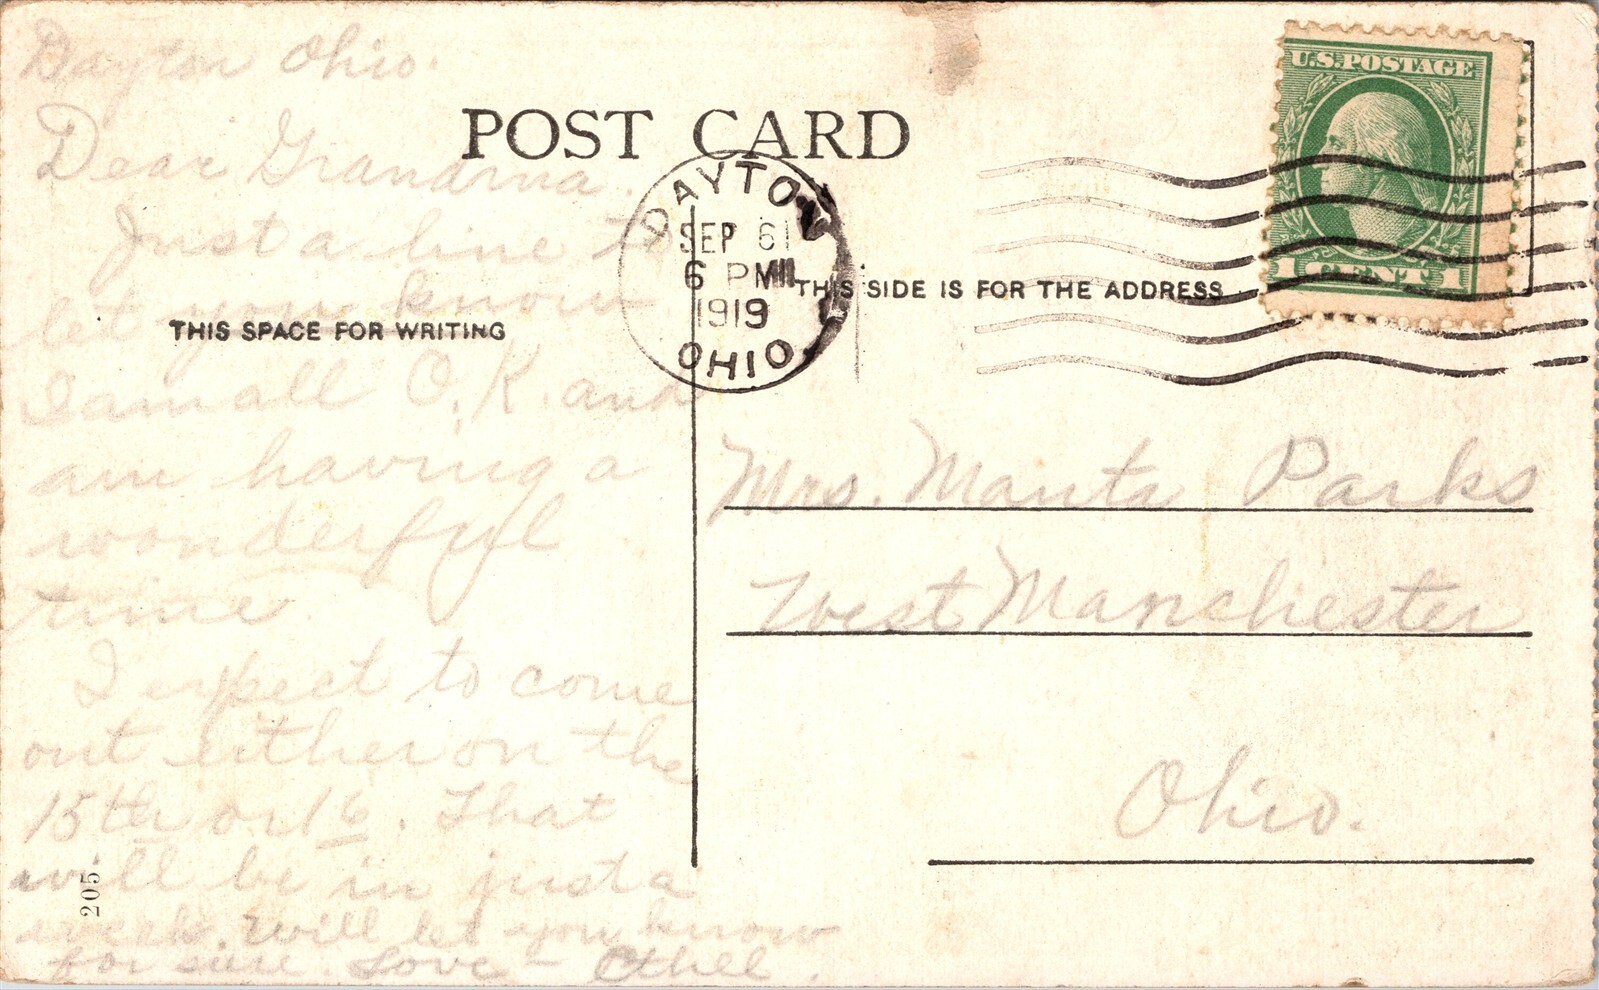 Dayton Ohio.
Dear Grandma.
Just a line to
let you know
I am all O.K. and
am having a
wonderful
time.
I expect to come
out either on the
15th or 16. That
will be in just a
week. Will let you know
for sure. Love - Ethel.
POST CARD
THIS SPACE FOR WRITING
205
DAYTON
SEP 6
6 PM
1919
OHIO
THIS SIDE IS FOR THE ADDRESS
U.S. POSTAGE
1 CENT 1
Mrs. Manta Parks
West Manchester
Ohio.